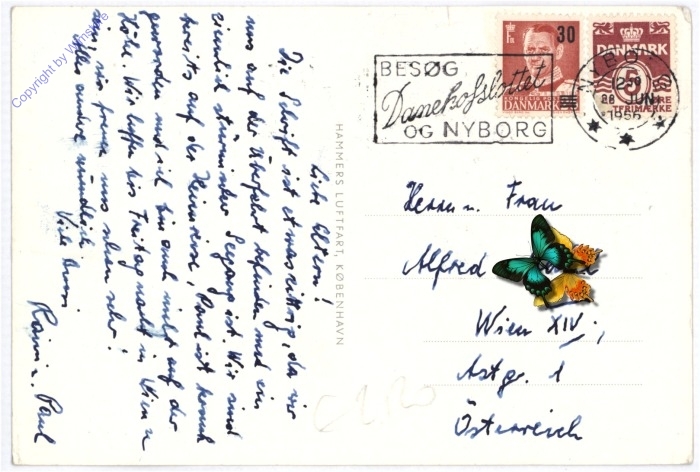 Copyright by Wienstore
Liebe Eltern!
Die Schrift ist etwas zittrig, da wir
uns auf der Überfahrt befinden und ein
ziemlich stürmischer Seegang ist. Wir sind
bereits auf der Heimreise, Paul ist krank
geworden und ich bin auch nicht auf der
Höhe. Wir hoffen bis Freitag nacht in Wien z
sein, wir freuen uns schon sehr.
Alles andere mündlich.
Viele Bussi
Raini u. Paul
HAMMERS LUFTFART, KØBENHAVN
30
DANMARK
DANMARK
5
ØRE
FRIMÆRKE
BESØG
Danehofslottet
OG NYBORG
NYBORG
28 JUNI
1956
Herrn u. Frau
Alfred
Wien XIV,
Astg. 1
Österreich